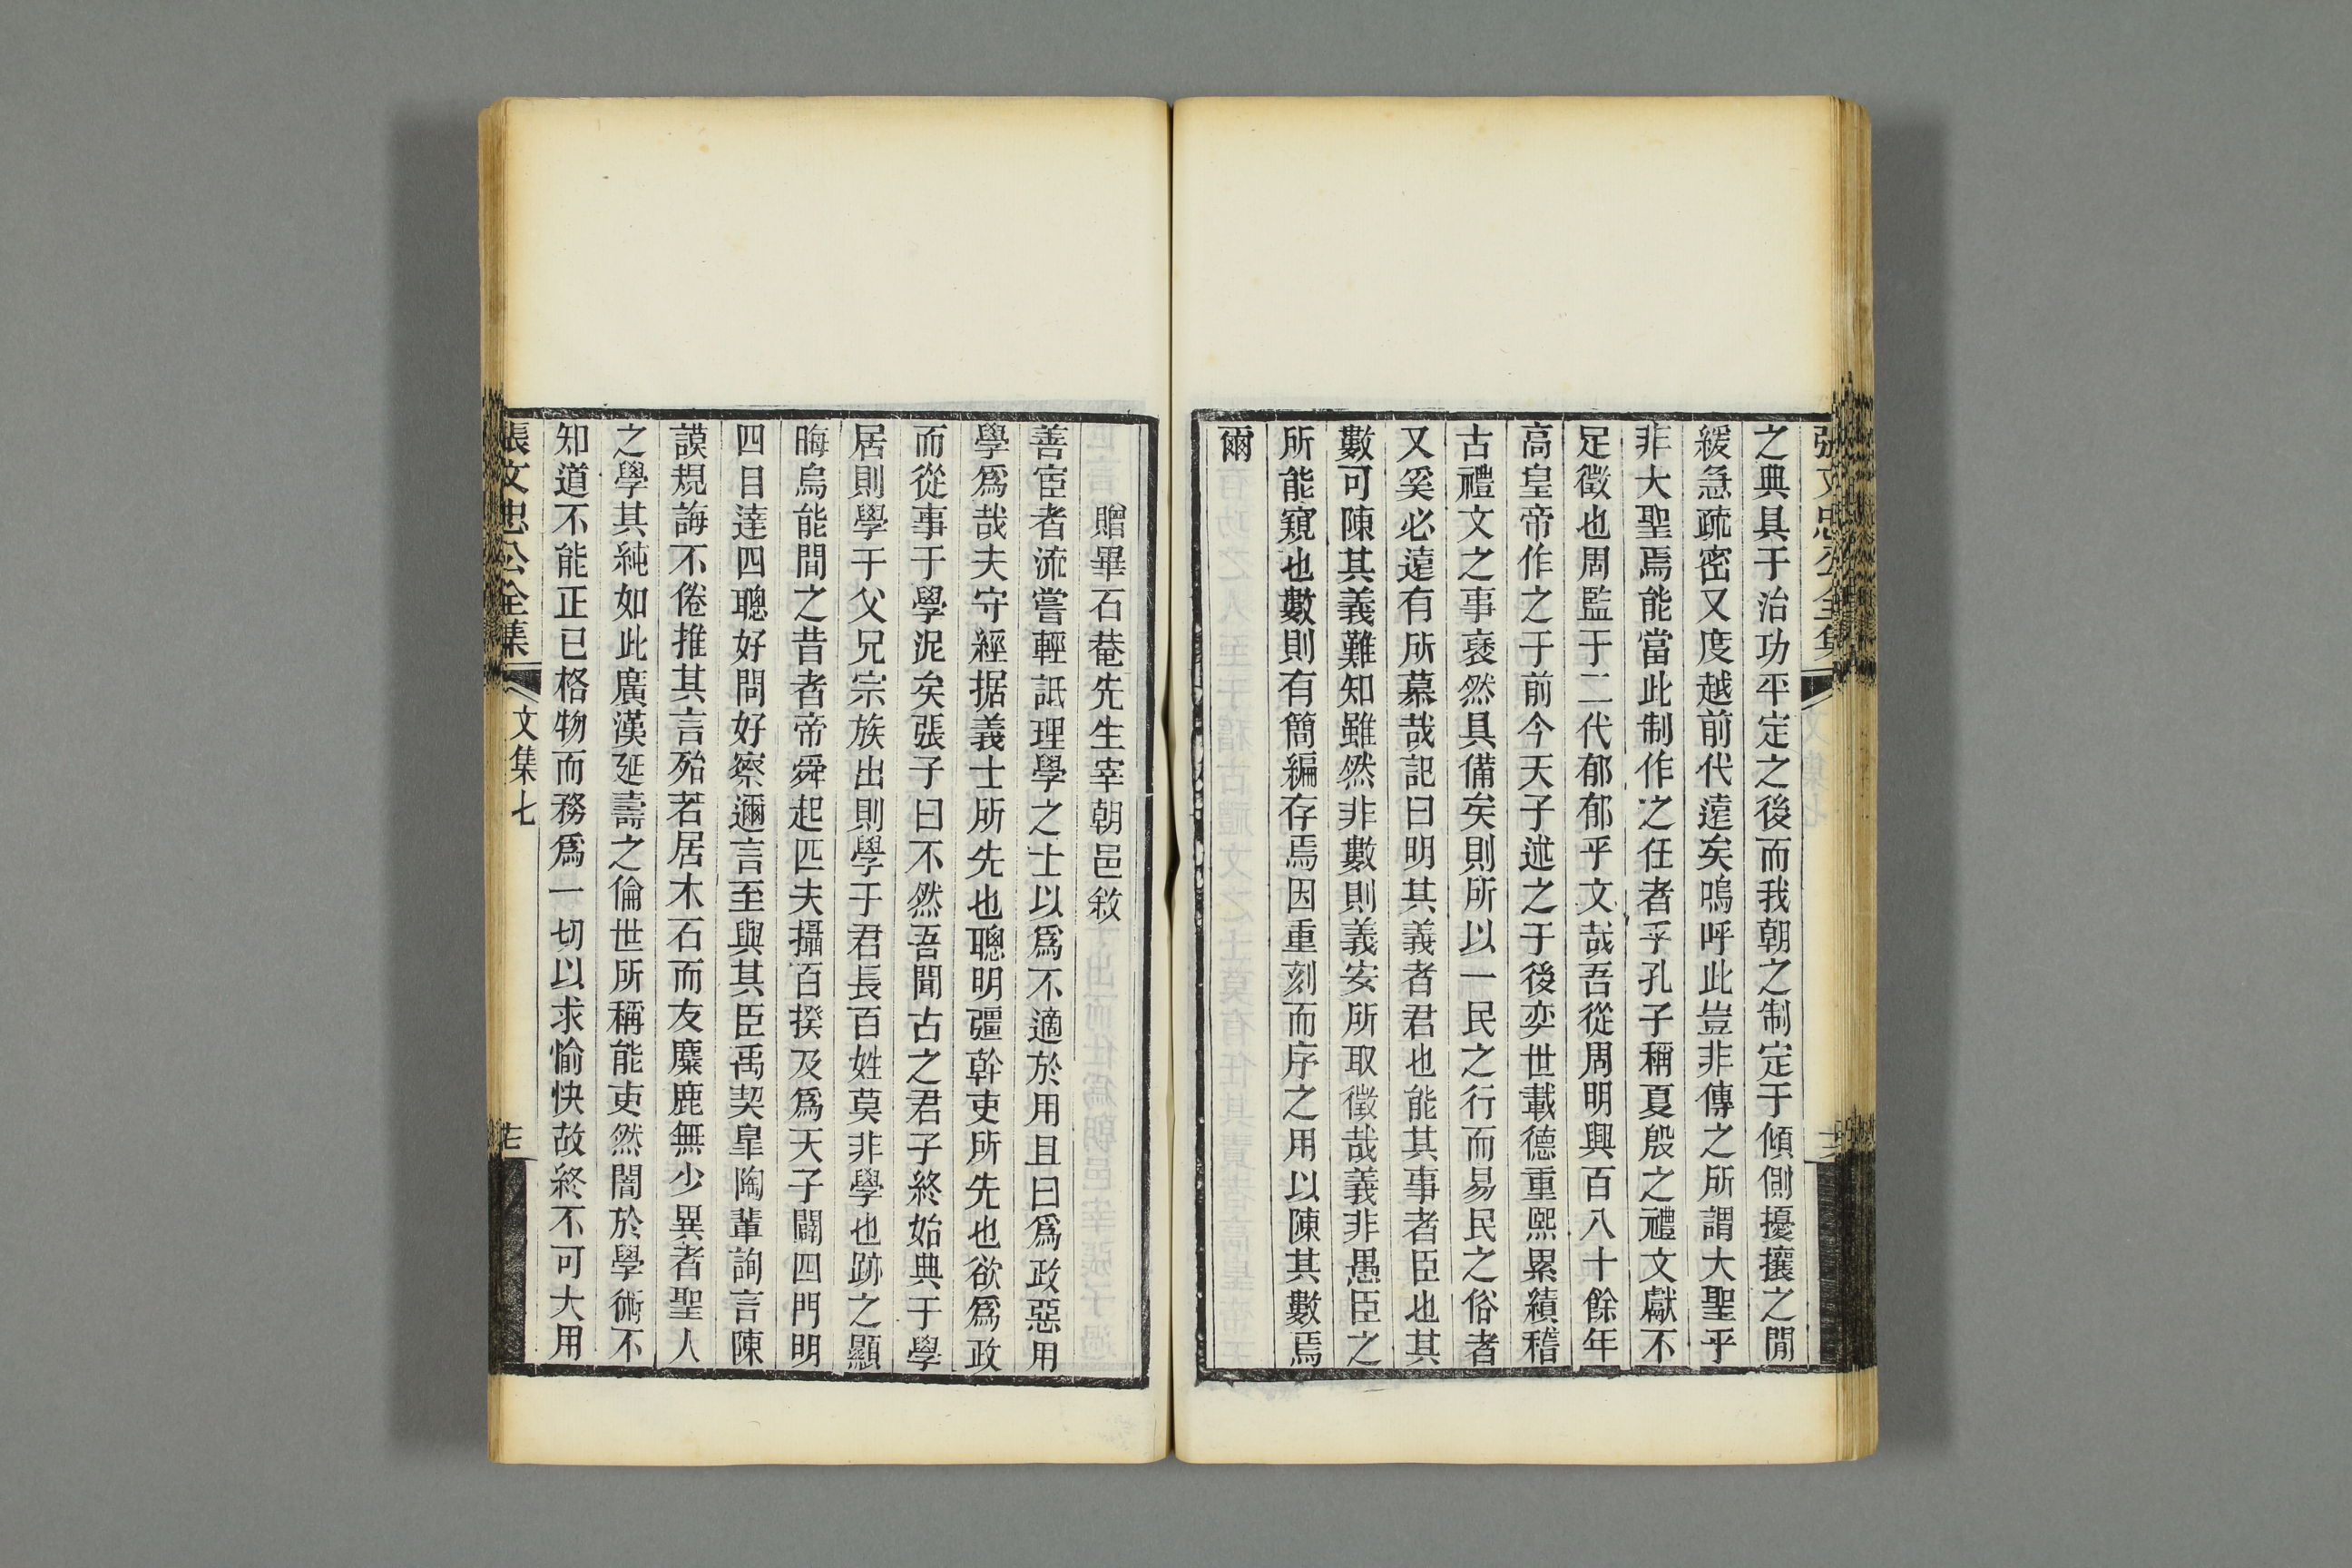 之典具于治功平定之後而我朝之制定于傾側擾攘之閒
緩急疏密又度越前代遠矣嗚呼此豈非傳之所謂大聖乎
非大聖焉能當此制作之任者乎孔子稱夏殷之禮文獻不
足徵也周監于二代郁郁乎文哉吾從周明興百八十餘年
高皇帝作之于前今天子述之于後奕世載德重熙累績稽
古禮文之事裦然具備矣則所以一民之行而易民之俗者
又奚必遠有所慕哉記曰明其義者君也能其事者臣也其
數可陳其義難知雖然非數則義安所取徵哉義非愚臣之
所能窺也數則有簡編存焉因重刻而序之用以陳其數焉
爾
贈畢石菴先生宰朝邑敘
善宦者流嘗輕詆理學之士以為不適於用且曰爲政惡用
學爲哉夫守經据義士所先也聰明彊幹吏所先也欲爲政
而從事于學泥矣張子曰不然吾聞古之君子終始典于學
居則學于父兄宗族出則學于君長百姓莫非學也跡之顯
晦烏能間之昔者帝舜起匹夫攝百揆及爲天子闢四門明
四目達四聰好問好察邇言至與其臣禹契皐陶輩詢言陳
謨規誨不倦推其言殆若居木石而友麋鹿無少異者聖人
之學其純如此廣漢延壽之倫世所稱能吏然闇於學術不
知道不能正已格物而務爲一切以求愉快故終不可大用
張文忠公全集
文集七